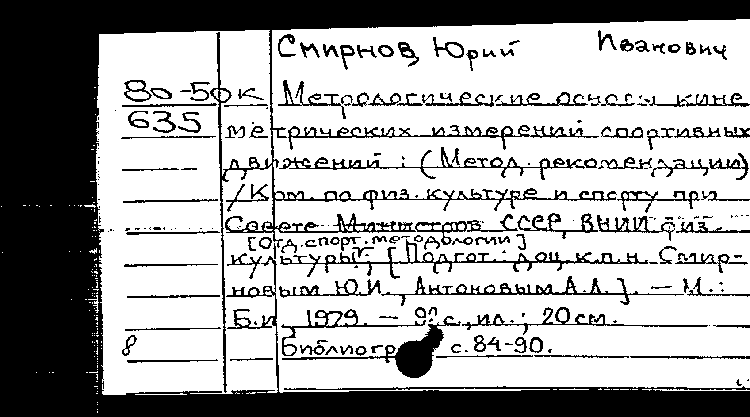 Смирнов, Юрий Иванович
80-50к Метрологические основы кине
635 метрических измерений спортивных
движений : (Метод. рекомендации)
/Ком. по физ. культуре и спорту при
Совете Министров СССР, ВНИИ физ.
[Отд. спорт. методологии]
культуры; [Подгот. доц. к.п.н. Смир-
новым Ю.И., Антоновым А.А.]. — М.:
Б.и, 1979. — с., ил.; 20см.
8 с. 84-90.